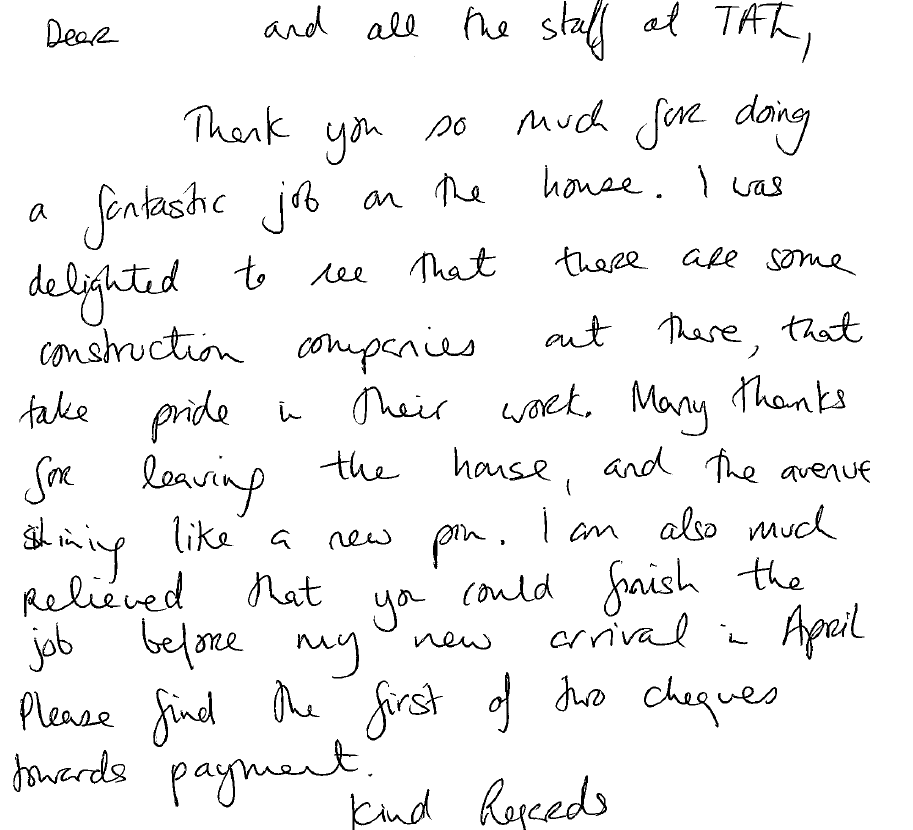 Dear and all the staff at TAL,
Thank you so much for doing
a fantastic job on the house. I was
delighted to see that there are some
construction companies out there, that
take pride in their work. Many thanks
for leaving the house, and the avenue
shining like a new pin. I am also much
relieved that you could finish the
job before my new arrival in April
Please find the first of two cheques
towards payment.
Kind Regards